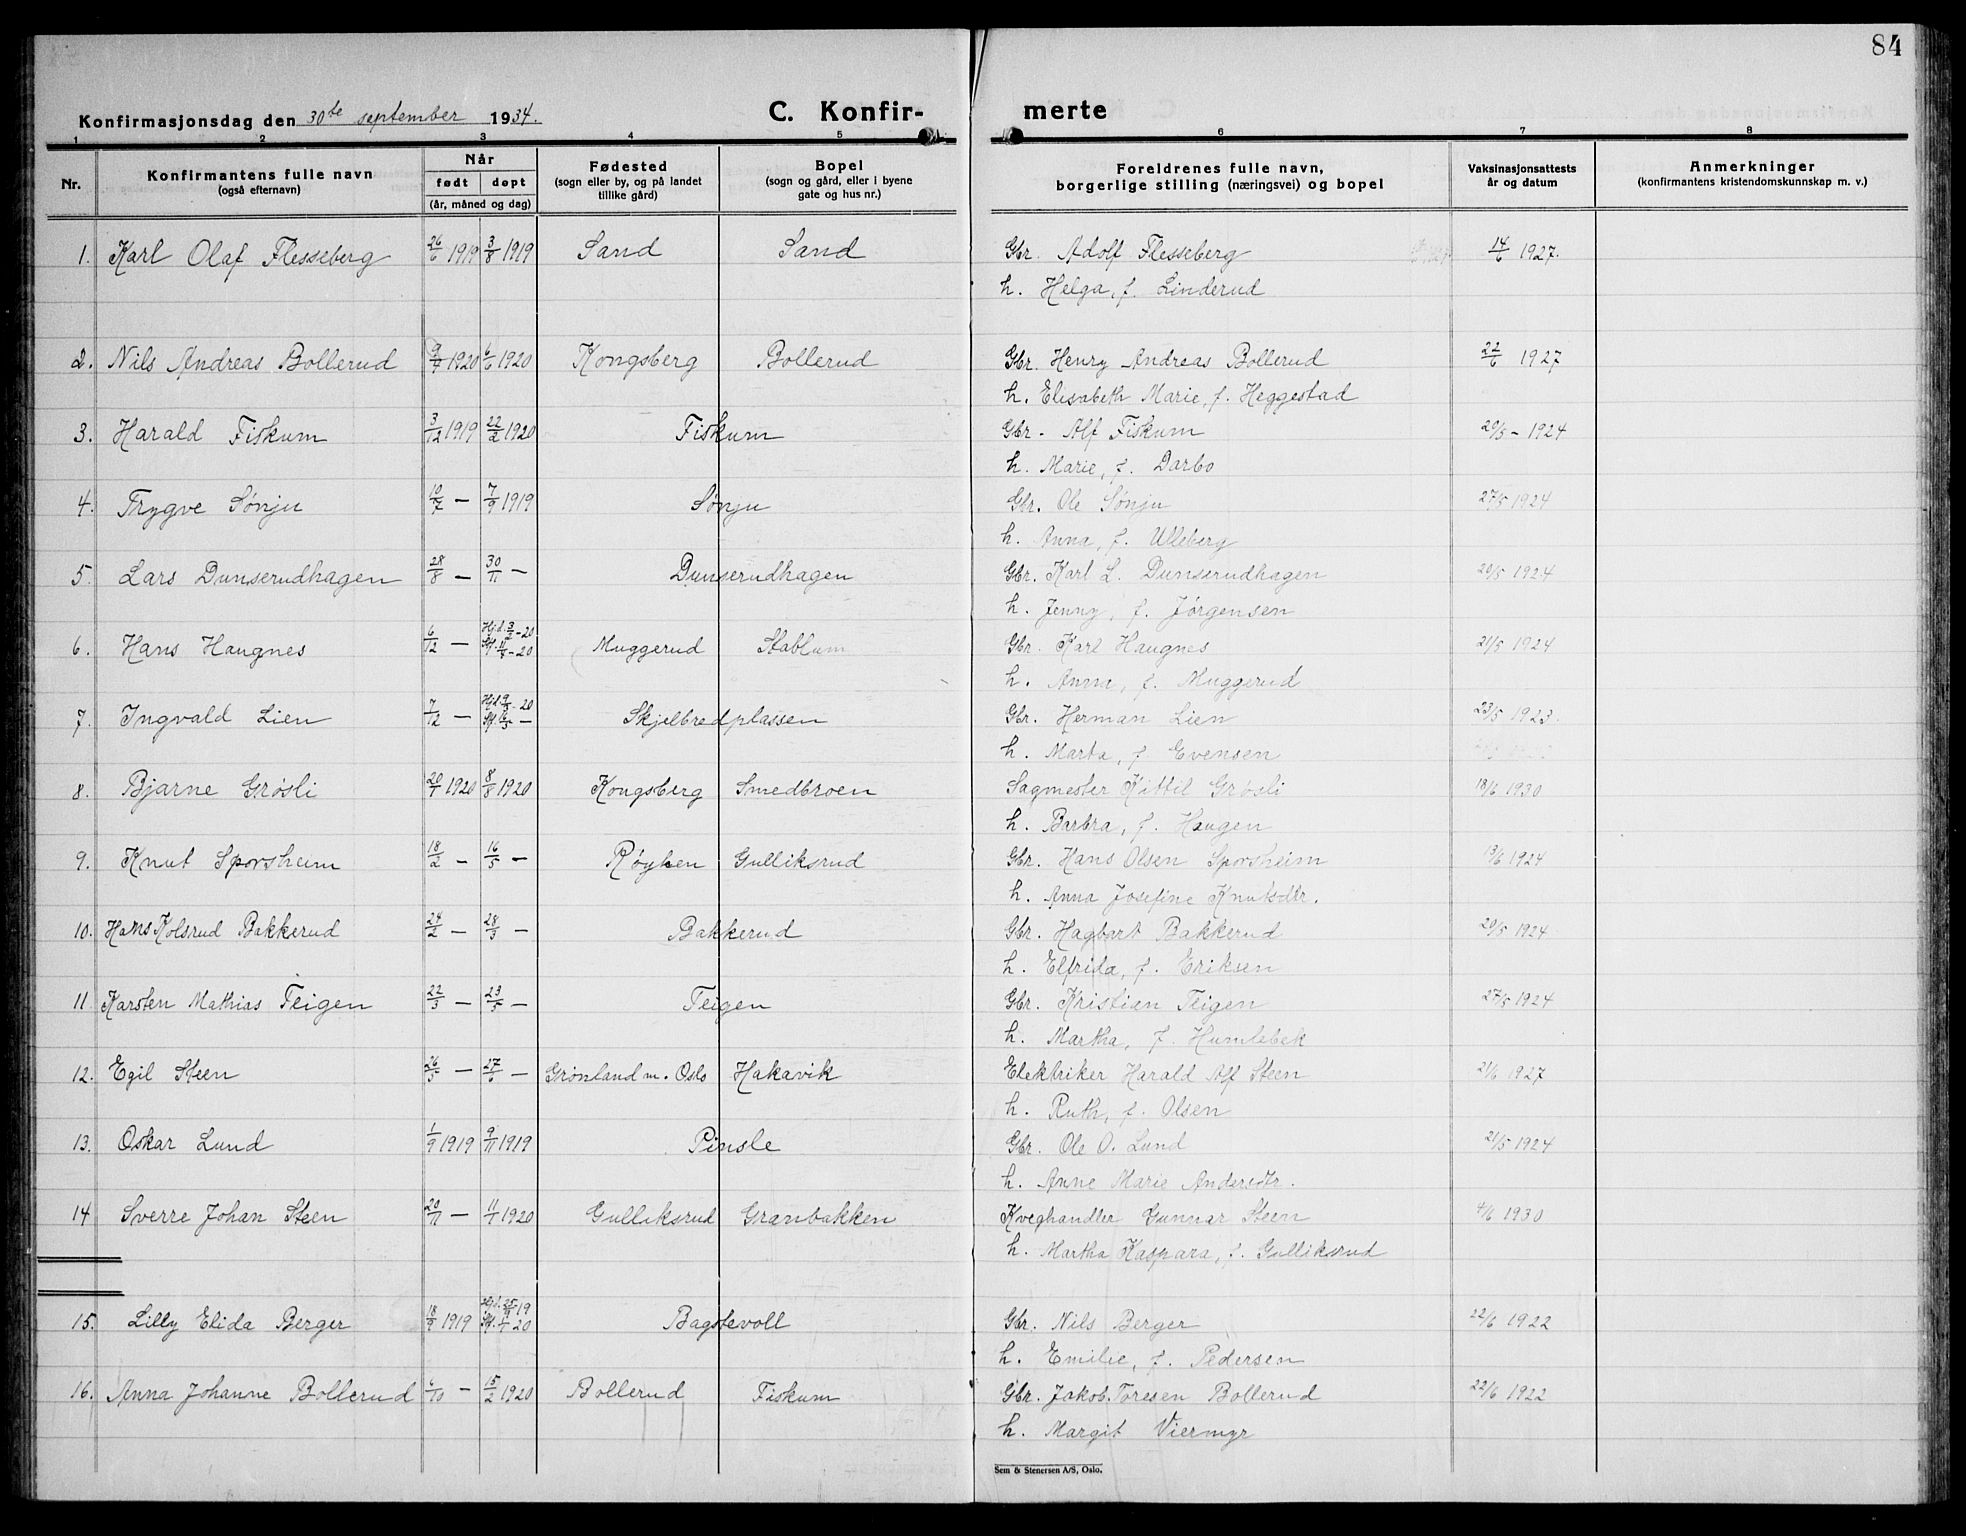 84
Konfirmasjonsdag den 30te september 1934.
C. Konfirmerte
1 2 3 4 5 6 7 8
Nr. Konfirmantens fulle navn (også efternavn) Når født døpt (år, måned og dag) Fødested (sogn eller by, og på landet tillike gård) Bopel (sogn og gård, eller i byene gate og hus nr.) Foreldrenes fulle navn, borgerlige stilling (næringsvei) og bopel Vaksinasjonsattests år og datum Anmerkninger (konfirmantens kristendomskunnskap m. v.)
1. Karl Olaf Flesseberg 26/6 1919 3/8 1919 Sand Sand Gbr. Adolf Flesseberg 14/6 1927.
h. Helga, f. Linderud
2. Nils Andreas Bollerud 9/4 1920 6/6 1920 Kongsberg Bollerud Gbr. Henry Andreas Bollerud 22/6 1927
h. Elisabeth Marie, f. Heggestad
3. Harald Fiskum 3/12 1919 22/2 1920 Fiskum Gbr. Alf Fiskum 20/5 - 1924
h. Marie, f. Darbo
4. Trygve Sønju 10/7 — 7/9 1919 Sønju Gbr. Ole Sønju 27/5 1924
h. Anna, f. Ulleberg
5. Lars Dunserudhagen 28/8 — 30/11 — Dunserudhagen Gbr. Karl L. Dunserudhagen 20/5 1924
h. Jenny, f. Jørgensen
6. Hans Haugnes 6/12 — Hjd. 3/2-20 Muggerud Stablum Gbr. Karl Haugnes 21/5 1924
h. Anna, f. Muggerud
7. Ingvald Lien 7/12 — Skjelbredplassen Gbr. Herman Lien 23/5 1923.
h. Marta, f. Evensen
8. Bjarne Grøsli 20/1 1920 8/8 1920 Kongsberg Smedbroen Sagmester Kittil Grøsli 18/6 1930
h. Barbra, f. Haugen
9. Knut Sporsheim 18/2 — 16/5 — Røyken Gulliksrud Gbr. Hans Olsen Sporsheim 13/6 1924
h. Anna Josefine Knutsdtr.
10. Hans Kolsrud Bakkerud 24/2 — 28/3 — Bakkerud Gbr. Hagbart Bakkerud 20/5 1924
h. Elfrida, f. Eriksen
11. Karsten Mathias Teigen 22/3 — 23/5 — Teigen Gbr. Kristian Teigen 27/5 1924
h. Martha, f. Humlebek
12. Egil Steen 26/3 — 27/6 — Grønland m. Oslo Hakavik Elektriker Harald Alf Steen 21/6 1927
h. Ruth, f. Olsen
13. Oskar Lund 1/9 1919 9/11 1919 Pinsle Gbr. Ole O. Lund 21/5 1924
h. Anne Marie Andersdtr.
14 Sverre Johan Steen 20/11 — 11/1 1920 Gulliksrud Granbakken Kveghandler Gunnar Steen 4/6 1930
h. Martha Kaspara, f. Gulliksrud
15. Lilly Elida Berger 18/9 1919 Bagstevoll Gbr. Nils Berger 22/6 1922
h. Emilie, f. Pedersen
16. Anna Johanne Bollerud 6/10 — 15/2 1920 Bollerud Fiskum Gbr. Jakob Toresen Bollerud 22/6 1922
h. Margit Viermyr
Sem & Stenersen A/S, Oslo.